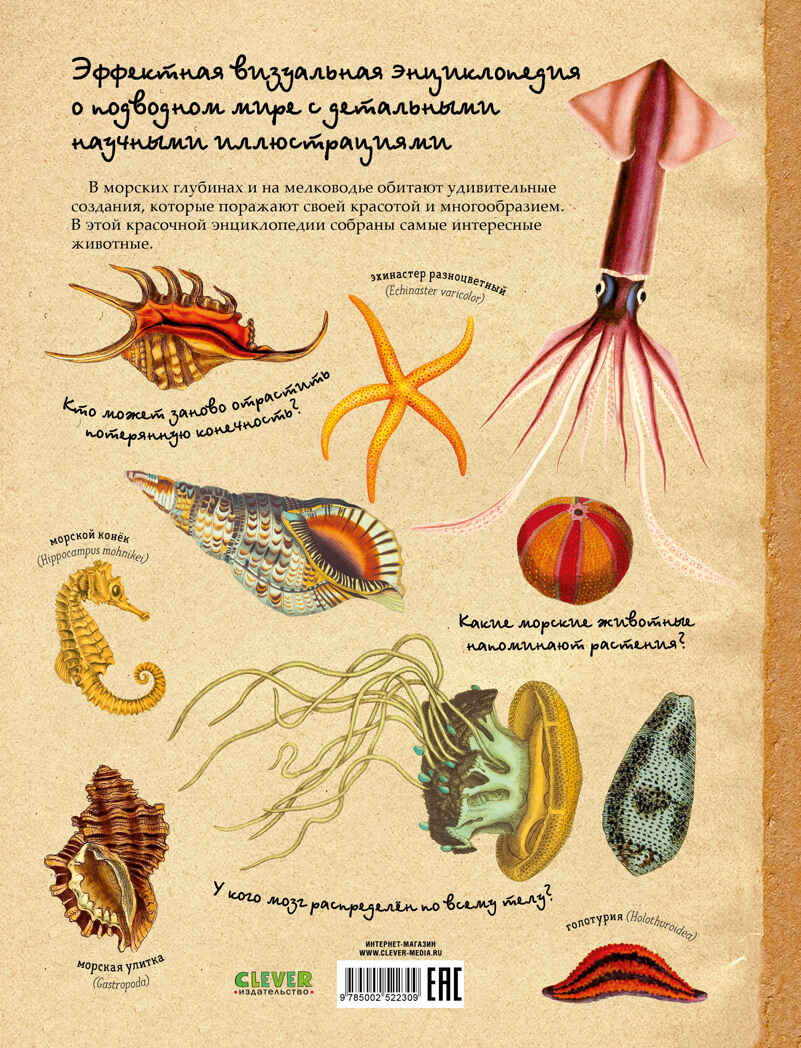 Эффектная визуальная энциклопедия
о подводном мире с детальными
научными иллюстрациями
В морских глубинах и на мелководье обитают удивительные
создания, которые поражают своей красотой и многообразием.
В этой красочной энциклопедии собраны самые интересные
животные.
эхинастер разноцветный
(Echinaster varicolor)
Кто может заново отрастить
потерянную конечность?
морской конёк
(Hippocampus mohnikei)
Какие морские животные
напоминают растения?
У кого мозг распределён по всему телу?
морская улитка
(Gastropoda)
голотурия (Holothuroidea)
ИНТЕРНЕТ-МАГАЗИН
WWW.CLEVER-MEDIA.RU
CLEVER
ИЗДАТЕЛЬСТВО
9 785002 522309
EAC